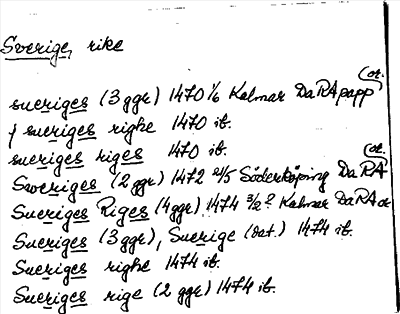 Sverige, rike
sueriges (3 ggr) 1470 1/6 Kalmar DaRA papp (or.
i sueriges righe 1470 ib.
sueriges riges 1470 ib.
Sweriges (2 ggr) 1472 21/5 Söderköping DaRA (or.
Sueriges Riges (4 ggr) 1474 3/2? Kalmar DaRA or
Sueriges (3 ggr), Suerige (oct.) 1474 ib.
Sueriges righe 1474 ib.
Sueriges rige (2 ggr) 1474 ib.